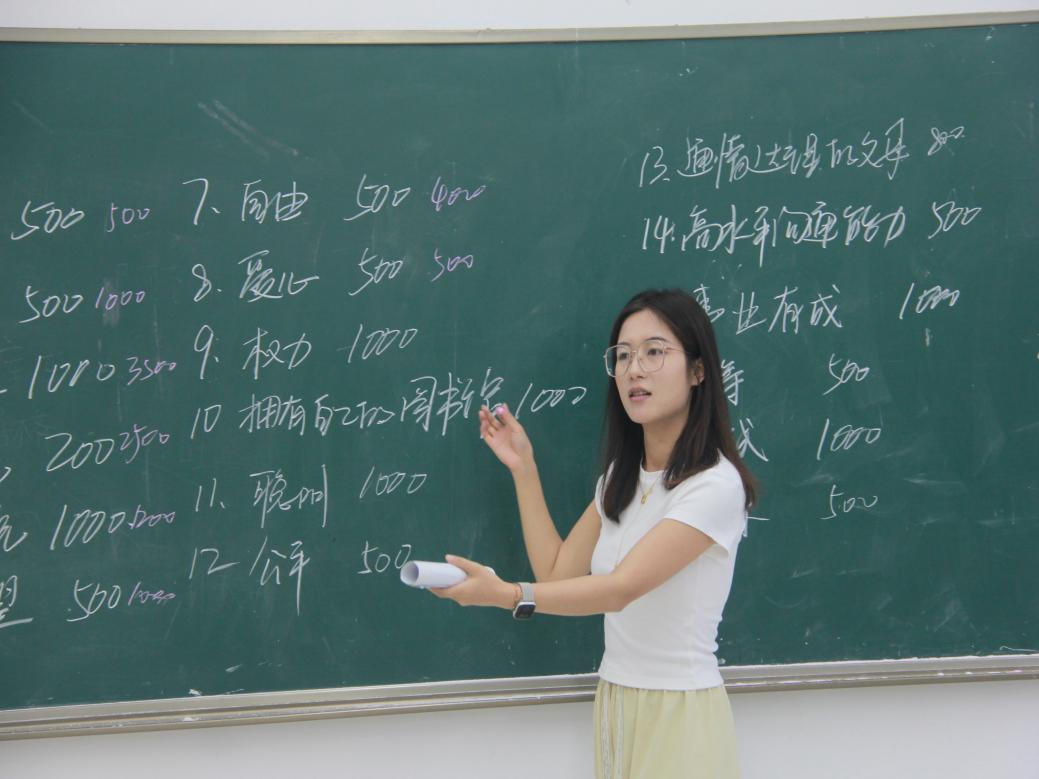 500 500
500 1000
1000 3500
200 2500
1000
500 1000
7、自由 500 4000
8、爱心 500 500
9、权力 1000
10 拥有自己的图书馆 1000
11、聪明 1000
12 公平 500
13、通情达理的父母 800
14、高水平沟通能力 500
业有成 1000
等 500
1000
500